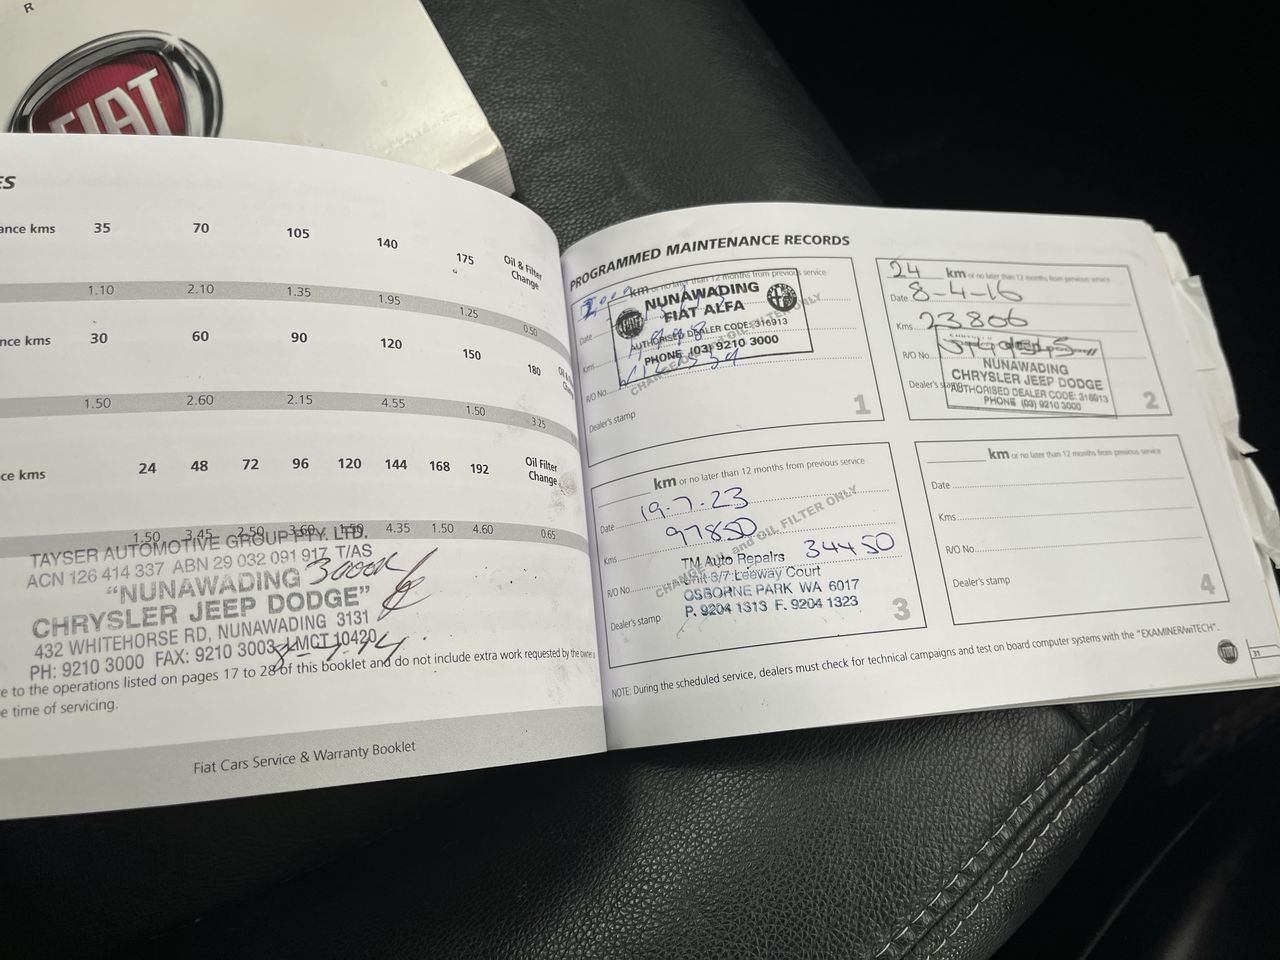 R
FIAT
ES
ance kms 35 70 105 140 175 Oil & Filter Change
1.10 2.10 1.35 1.95 1.25 0.50
ance kms 30 60 90 120 150 180
1.50 2.60 2.15 4.55 1.50 3.25
ce kms 24 48 72 96 120 144 168 192 Oil Filter Change
1.50 3.45 2.50 3.60 1.50 4.35 1.50 4.60 0.65
TAYSER AUTOMOTIVE GROUP PTY. LTD.
ACN 126 414 337 ABN 29 032 091 917 T/AS
"NUNAWADING 3000k
CHRYSLER JEEP DODGE"
432 WHITEHORSE RD, NUNAWADING 3131
PH: 9210 3000 FAX: 9210 3003 LMCT 10420
e to the operations listed on pages 17 to 28 of this booklet and do not include extra work requested by the owner
e time of servicing.
Fiat Cars Service & Warranty Booklet
PROGRAMMED MAINTENANCE RECORDS
km or no later than 12 months from previous service
NUNAWADING
FIAT ALFA
AUTHORISED DEALER CODE: 316913
PHONE (03) 9210 3000
Date
Kms
R/O No.
Dealer's stamp
1
24 km or no later than 12 months from previous service
Date 8-4-16
Kms 23806
R/O No.
NUNAWADING
CHRYSLER JEEP DODGE
Dealer's stamp AUTHORISED DEALER CODE: 316913
PHONE (03) 9210 3000
2
km or no later than 12 months from previous service
Date 19.7.23
Kms 97850
CHANGE OIL and OIL FILTER ONLY
R/O No. 34450
TM Auto Repairs
Unit 3/7 Leeway Court
OSBORNE PARK WA 6017
Dealer's stamp P. 9204 1313 F. 9204 1323
3
km or no later than 12 months from previous service
Date
Kms
R/O No.
Dealer's stamp
4
NOTE: During the scheduled service, dealers must check for technical campaigns and test on board computer systems with the "EXAMINER/wiTECH".
31